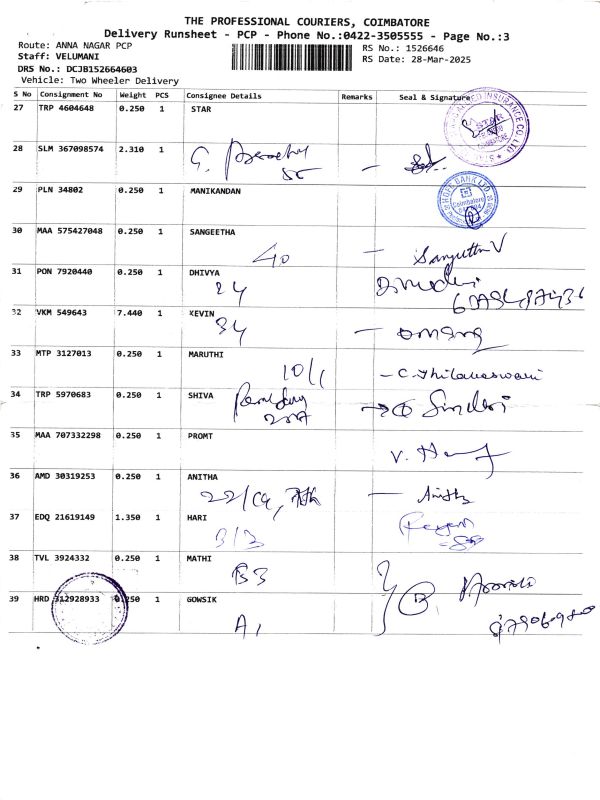 THE PROFESSIONAL COURIERS, COIMBATORE
Delivery Runsheet - PCP - Phone No.:0422-3505555 - Page No.:3
Route: ANNA NAGAR PCP
RS No.: 1526646
Staff: VELUMANI
RS Date: 28-Mar-2025
DRS No.: DCJB152664603
Vehicle: Two Wheeler Delivery
S No Consignment No Weight PCS Consignee Details Remarks Seal & Signature
27 TRP 4604648 0.250 1 STAR
28 SLM 367098574 2.310 1
29 PLN 34802 0.250 1 MANIKANDAN
30 MAA 575427048 0.250 1 SANGEETHA
40 - Sangeetha V
31 PON 7920440 0.250 1 DHIVYA
24
32 VKM 549643 7.440 1 KEVIN
34 -
33 MTP 3127013 0.250 1 MARUTHI
10/1 - C. Thilakaswari
34 TRP 5970683 0.250 1 SHIVA
35 MAA 707332298 0.250 1 PROMT
36 AMD 30319253 0.250 1 ANITHA
22/C9, 7th - Anitha
37 EDQ 21619149 1.350 1 HARI
B/3
38 TVL 3924332 0.250 1 MATHI
B3
39 HRD 312928933 0.250 1 GOWSIK
A1